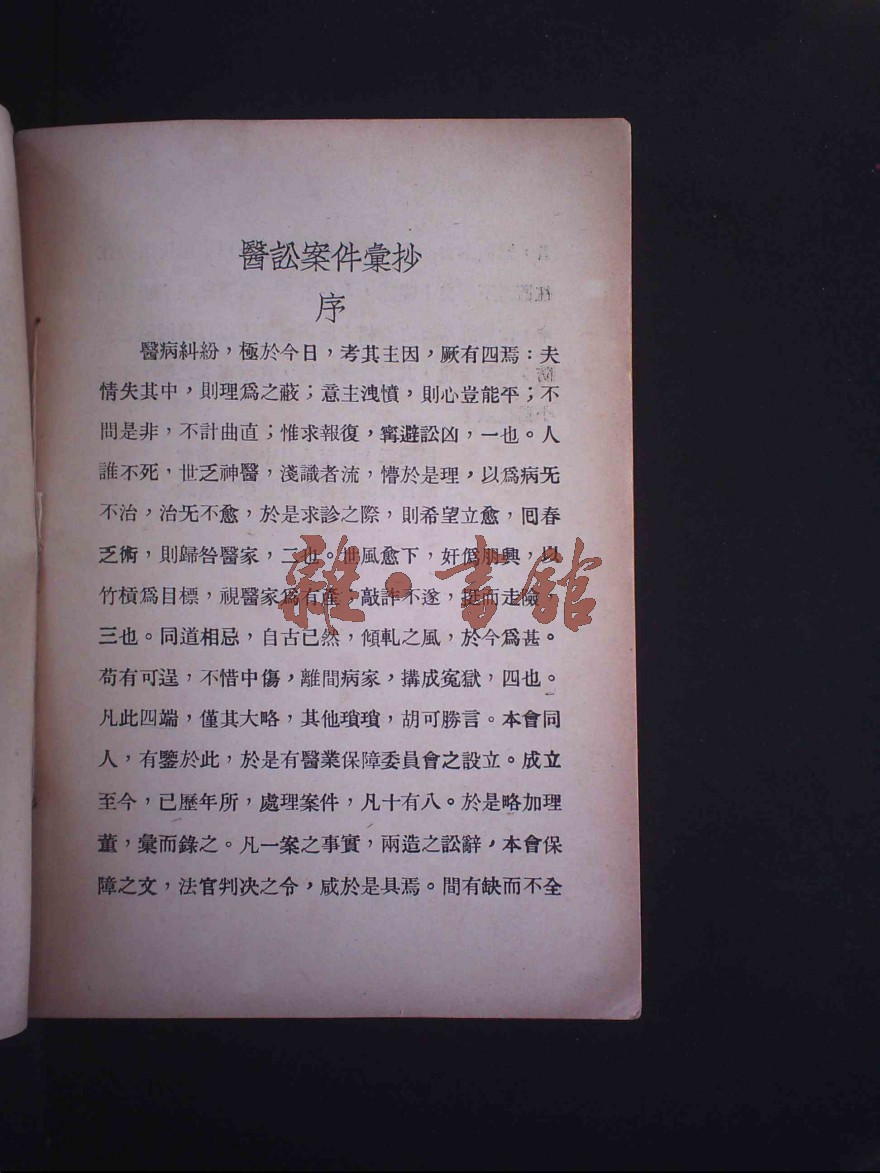 醫訟案件彙抄
序
醫病糾紛，極於今日，考其主因，厥有四焉：夫
情失其中，則理爲之蔽；意主洩憤，則心豈能平；不
問是非，不計曲直；惟求報復，寗避訟凶，一也。人
誰不死，世乏神醫，淺識者流，懵於是理，以爲病旡
不治，治旡不愈，於是求診之際，則希望立愈，囘春
乏術，則歸咎醫家，二也。世風愈下，奸僞朋興，以
竹槓爲目標，視醫家爲有產，敲詐不遂，挺而走險，
三也。同道相忌，自古已然，傾軋之風，於今爲甚。
苟有可逞，不惜中傷，離間病家，搆成寃獄，四也。
凡此四端，僅其大略，其他瑣瑣，胡可勝言。本會同
人，有鑒於此，於是有醫業保障委員會之設立。成立
至今，已歷年所，處理案件，凡十有八。於是略加理
董，彙而錄之。凡一案之事實，兩造之訟辭，本會保
障之文，法官判决之令，咸於是具焉。間有缺而不全
雜·書館